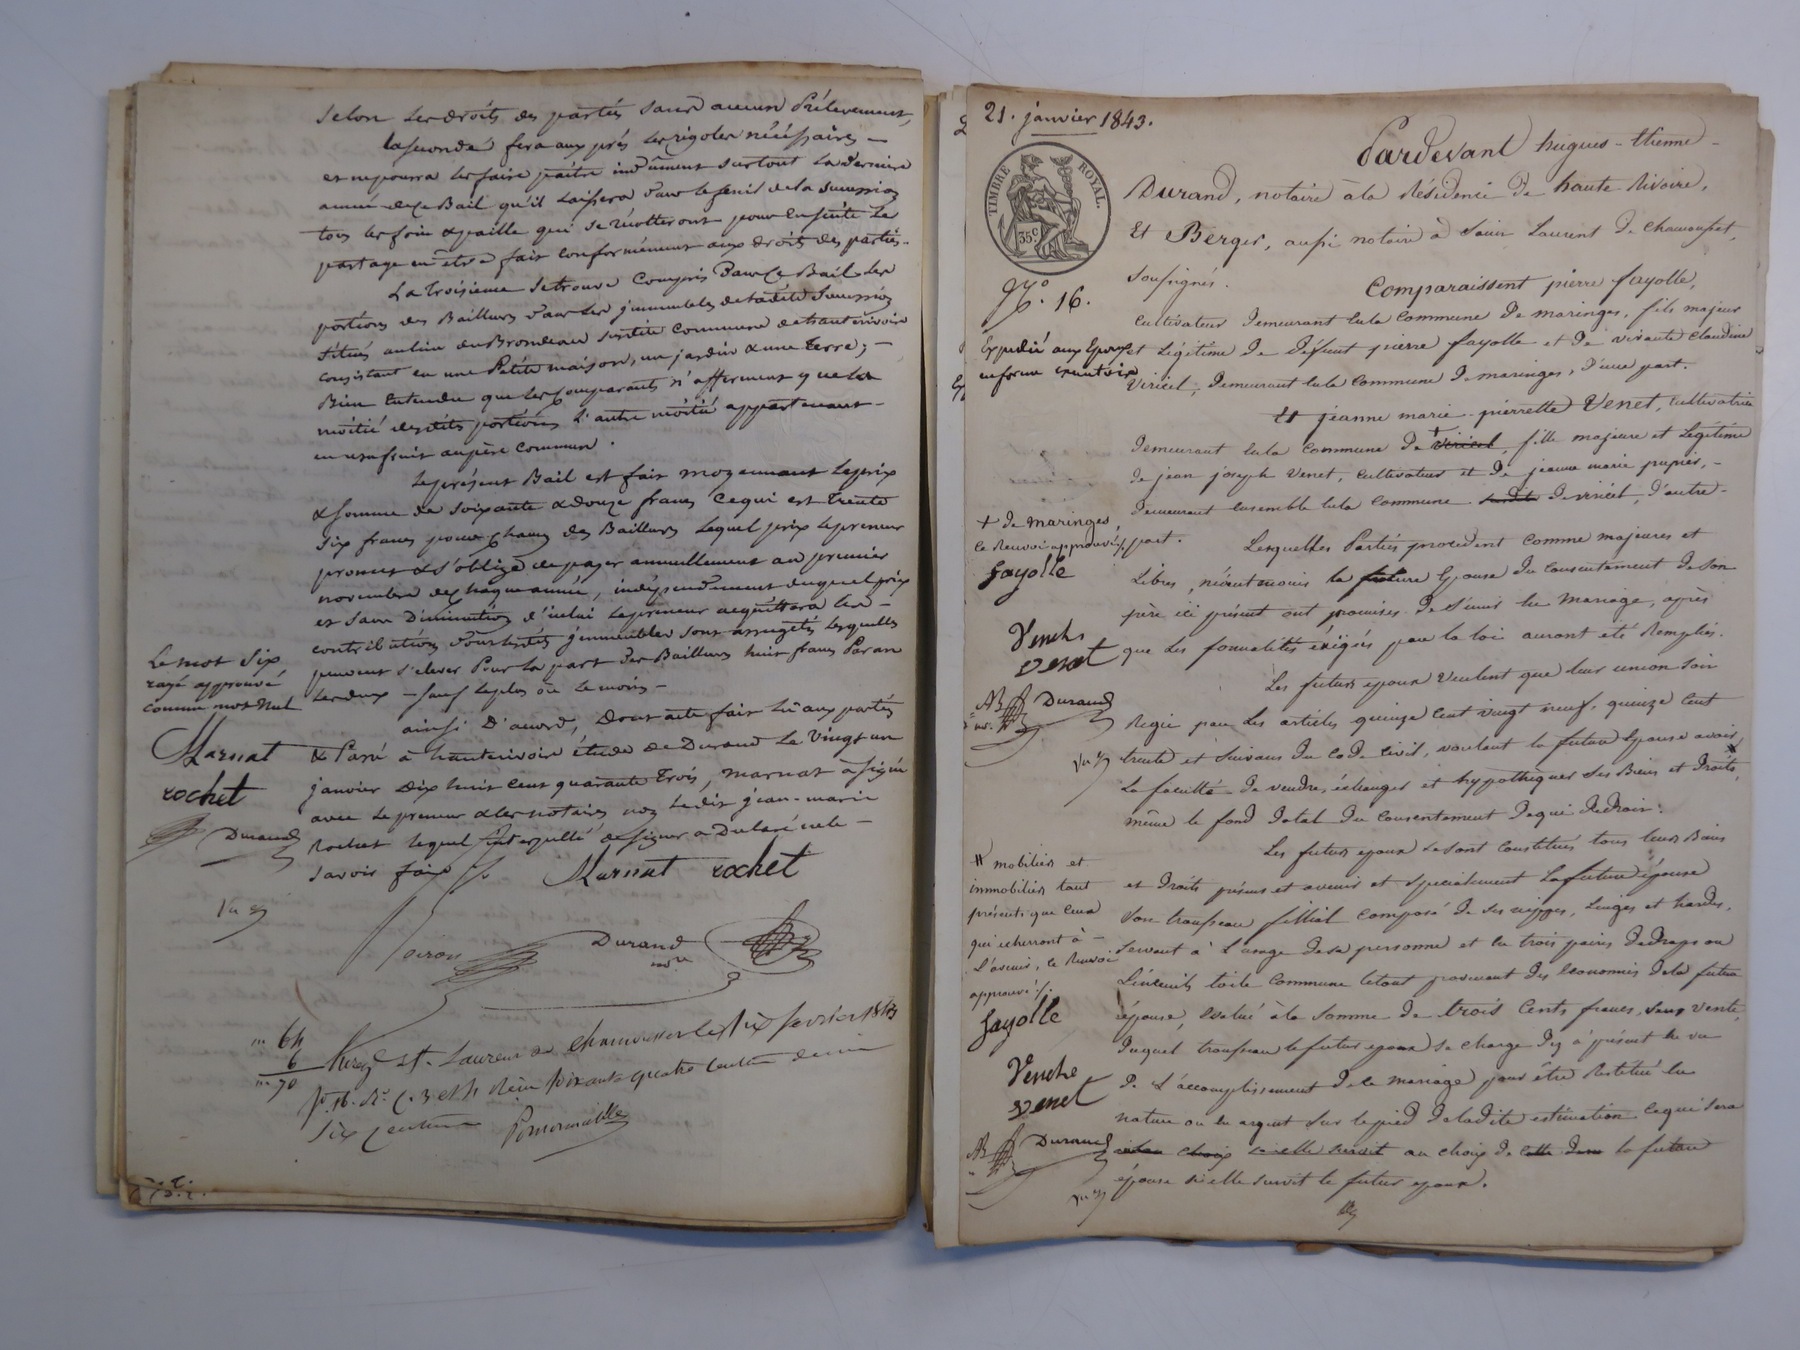 Selon les droits des parties sans aucun Prélevement,
la seconde fera aux prés les rigoles nécéssaires —
et ne pourra les faire paître induement surtout la derniere
année de ce Bail qu'il laissera dans le fenil de la succession
tous les foin & paille qui se récolteront pour ensuite le
partage en être fait conformément aux droits des parties.
La troisieme se trouve Compris dans ce Bail les
portions des Bailleurs dans les immeubles de ladite succession
situés au lieu du Brondeau susdite Commune de hauterivoire
consistant en une Petite maison, un jardin & une terre; —
Bien Entendu que les Comparants n'afferment que la
moitié desdites portions l'autre moitié appartenant —
en usufruit au père commun.
Le présent Bail est fait moyennant le prix
& somme de soixante & douze francs ce qui est trente
six francs pour chacun des Bailleurs lequel prix le preneur
promet & s'oblige de payer annuellement au premier
novembre de chaque année, indépendamment duquel prix
et sans Diminution d'icelui le preneur acquittera les —
contributions dont lesdits immeubles sont assujetis lesquelles
peuvent s'élever Pour la part des Bailleurs huit francs Par an
les deux — sauf le plus ou le moins —
ainsi D'accord, Dont acte fait lu aux parties
& Passé à hauterivoire étude de Durand le Vingt un
janvier dix huit cent quarante trois, marnat a signé
avec le preneur & les notaires non ledit jean-marie
rochet lequel interpellé de signer a Déclaré ne le —
savoir faire
Marnat rochet
Le mot Six
rayé approuvé
comme mot nul
Marnat
rochet
Durand
Vu
Durand
Enregé à St. Laurent de Chamousset le six février 1843
six centimes
21. janvier 1843.
TIMBRE ROYAL.
35 c
No. 16.
Expedié aux Epoux
en forme executoire
Pardevant hugues-Etienne —
Durand, notaire à la Résidence de haute Rivoire,
Et Berger, aussi notaire à Saint Laurent De Chamousset,
Soussignés.
Comparaissent pierre fayolle,
Cultivateur Demeurant en la Commune De maringes, fils majeur
et Légitime De Défunt pierre fayolle et De vivante Claudine
Viricel, Demeurant en la Commune De maringes, D'une part.
Et jeanne marie-pierrette Venet, cultivatrice
Demeurant en la Commune De Viricel, fille majeure et Légitime
De jean joseph Venet, cultivateur et De jeanne marie pupier, —
Demeurant ensemble en la Commune susdite De viricel, D'autre —
part.
+ De maringes,
le Renvoi approuvé
fayolle
Venet
Durand
Lesquelles Parties procedent comme majeures et
Libres, néantmoins la future Epouse Du consentement De son
père ici présent ont promises De s'unir en Mariage, après
que les formalités éxigées par la loi auront été Remplies.
Les futurs epoux veulent que leur union soit
Regie par les articles quinze cent vingt neuf, quinze cent
trente et suivans Du Code Civil, voulant la future Epouse avoir
la faculté De vendre, échanger et hypothequer ses Biens et Droits,
même le fond Dotal Du Consentement De qui De droit.
Les futurs epoux se sont constitués tous leurs Biens
et Droits présens et avenir et specialement la future épouse
Son trousseau filial composé De ses nippes, linges et hardes,
Servant à L'usage De sa personne et en trois paires De draps ou
Linceuls toile commune letout provenant Des Economies De la future
épouse, évalué à la somme De trois Cents francs, sans vente,
Duquel trousseau le futur epoux se charge Dès à présent en vu
De L'accomplissement De le mariage pour être Restitué en
nature ou en argent sur le pied De ladite estimation ce qui sera
choix si elle survit au choix De la future
épouse si elle survit le futur epoux.
# mobiliers et
immobiliers tant
présents que ceux
qui echerront à —
L'avenir, le Renvoi
approuvé
fayolle
Venet
Durand